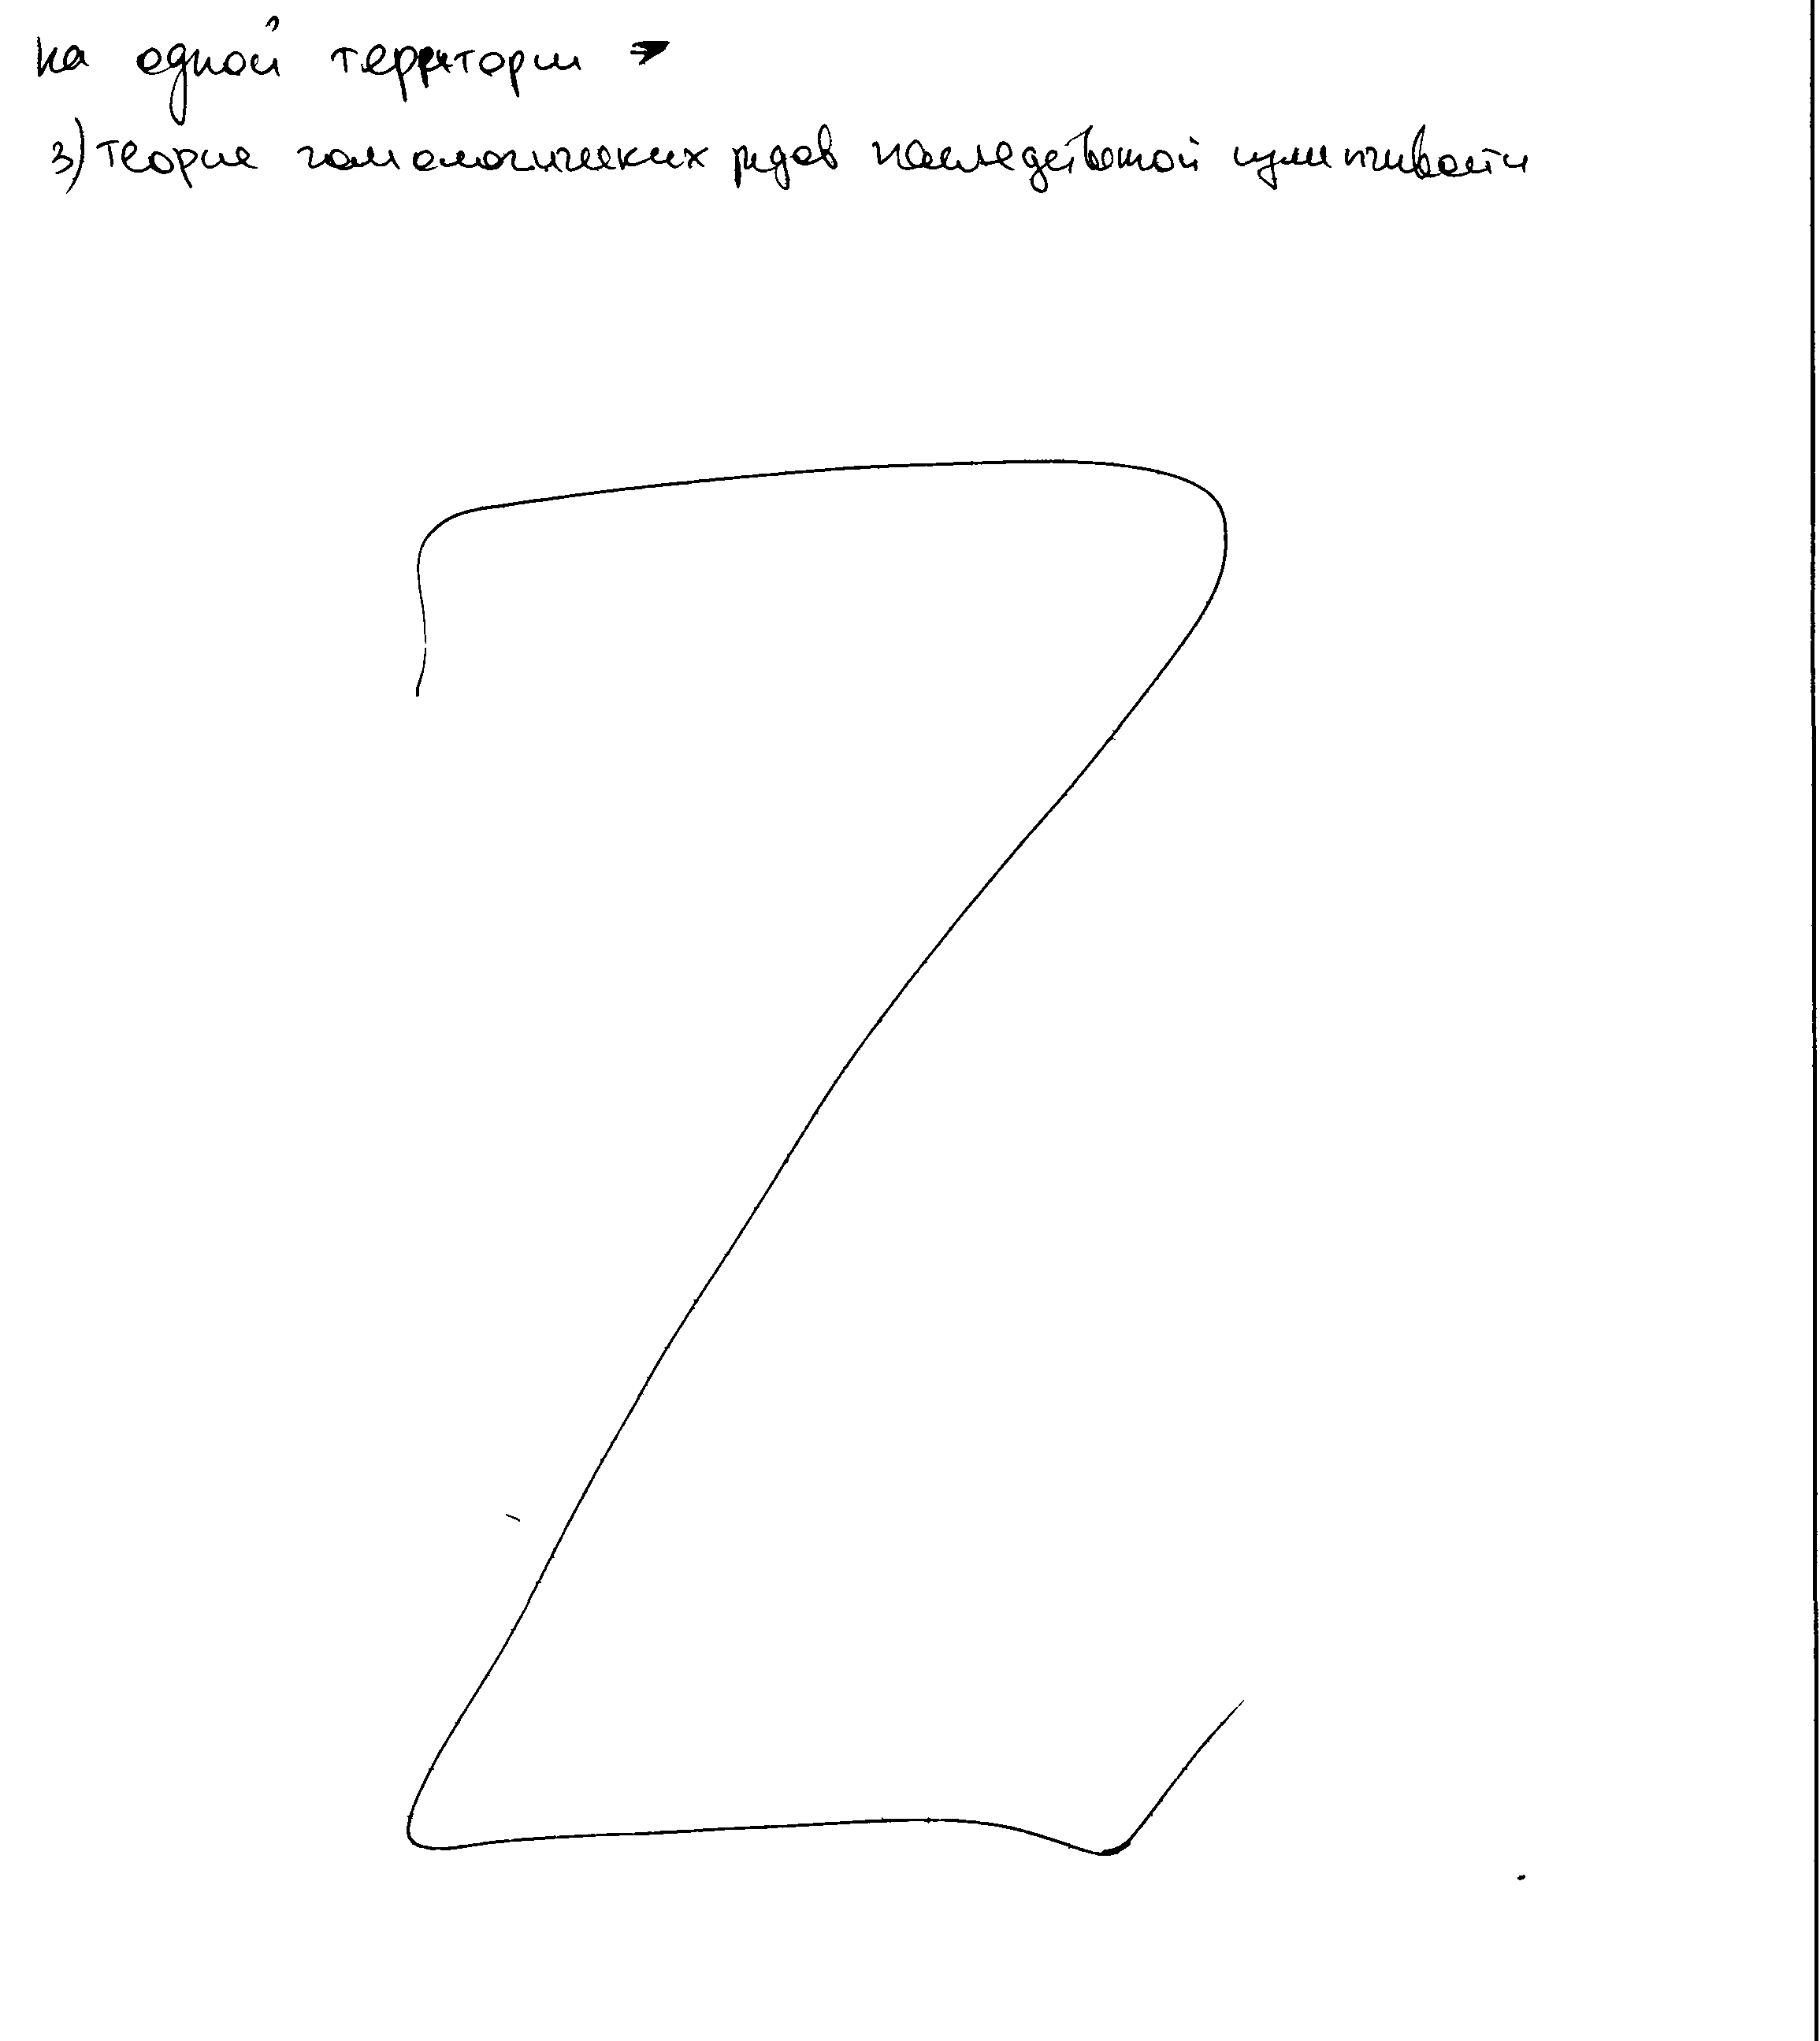 на одной територи
3) теория гомологических рядов наследственной изменчивости